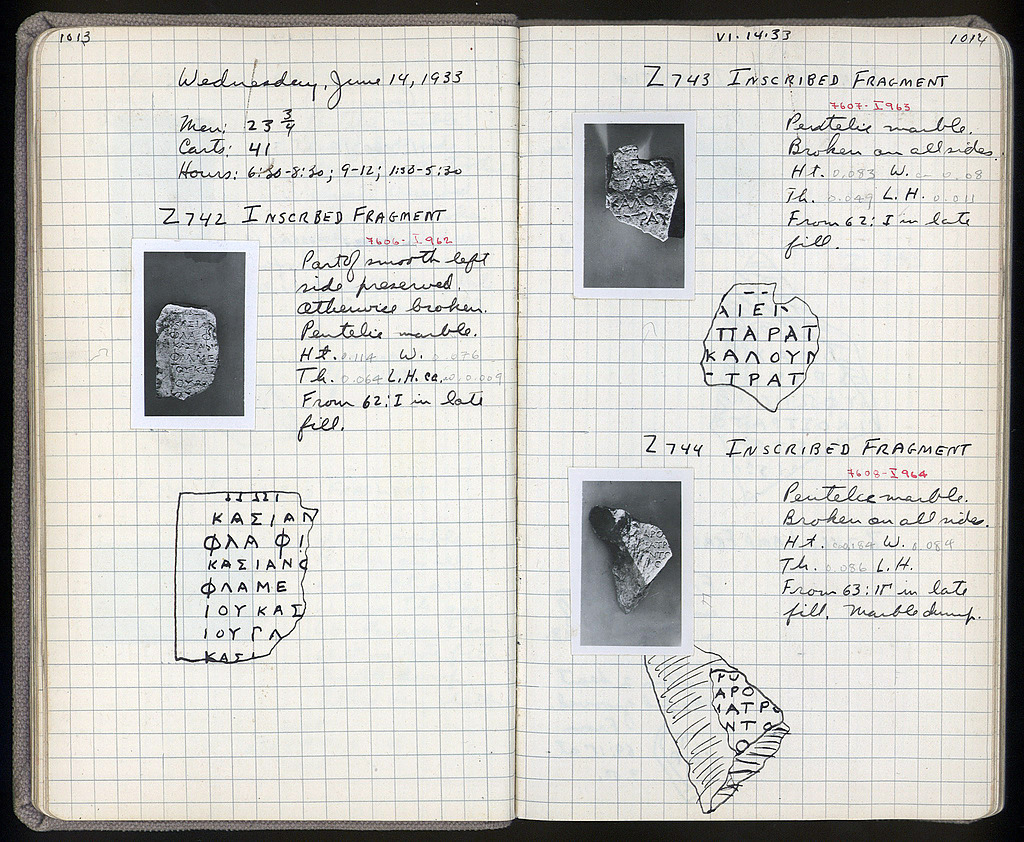 1013
Wednesday, June 14, 1933
Men: 23 3/4
Carts: 41
Hours: 6:30-8:30; 9-12; 1:30-5:30
Z 742 INSCRBED FRAGMENT
7606- I 962
Part of smooth left
side preserved.
Otherwise broken.
Pentelic marble.
Ht. 0.114 W. 0.076
Th. 0.064 L.H. ca. 0.009
From 62:I in late
fill.
ΚΑΣΙΑΝ
ΦΛΑ ΦΙ
ΚΑΣΙΑΝΟ
ΦΛΑΜΕ
ΙΟΥΚΑΣ
ΙΟΥΓΛ
ΚΑΣΙ
VI.14.33
1014
Z 743 INSCRIBED FRAGMENT
7607- I 963
Pentelic marble.
Broken on all sides.
Ht. 0.083 W. 0.08
Th. 0.049 L.H. 0.011
From 62:I in late
fill.
ΑΙΕΝ
ΠΑΡΑΤ
ΚΑΛΟΥΠ
ΤΡΑΤ
Z 744 INSCRIBED FRAGMENT
7608- I 964
Pentelic marble.
Broken on all sides.
Ht. 0.184 W. 0.084
Th. 0.086 L.H.
From 63:ΙΓ in late
fill. Marble dump.
ΡΩ
ΑΡΟ
ΙΑΤΡΟ
ΝΤΟ
Ο